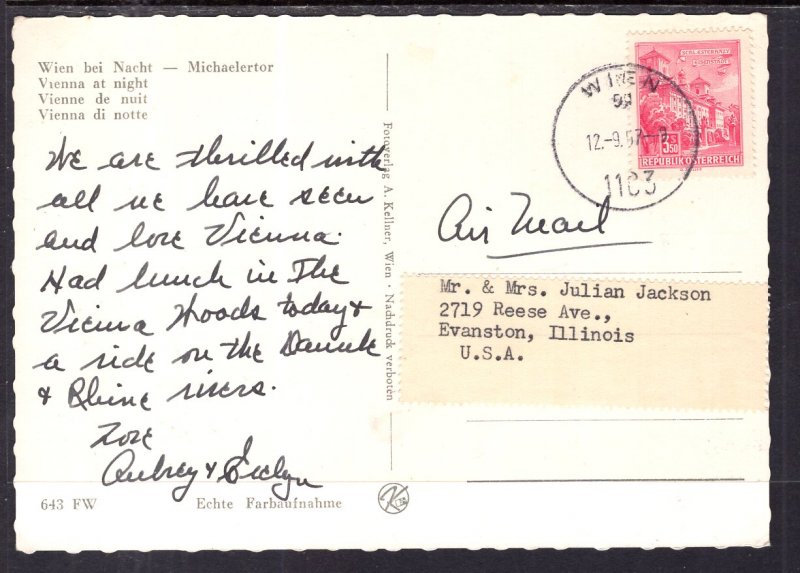 Wien bei Nacht — Michaelertor
Vienna at night
Vienne de nuit
Vienna di notte
We are thrilled with
all we have seen
and love Vienna.
Had lunch in The
Vienna Woods today &
a ride on the Danube
& Rhine rivers.
Love
Aubrey & Evelyn
643 FW
Echte Farbaufnahme
Fotoverlag A. Kellner, Wien · Nachdruck verboten
WIEN
12.-9.67
1103
SCHL. ESTERHAZY
EISENSTADT
S 3.50
REPUBLIK ÖSTERREICH
Air Mail
Mr. & Mrs. Julian Jackson
2719 Reese Ave.,
Evanston, Illinois
U.S.A.